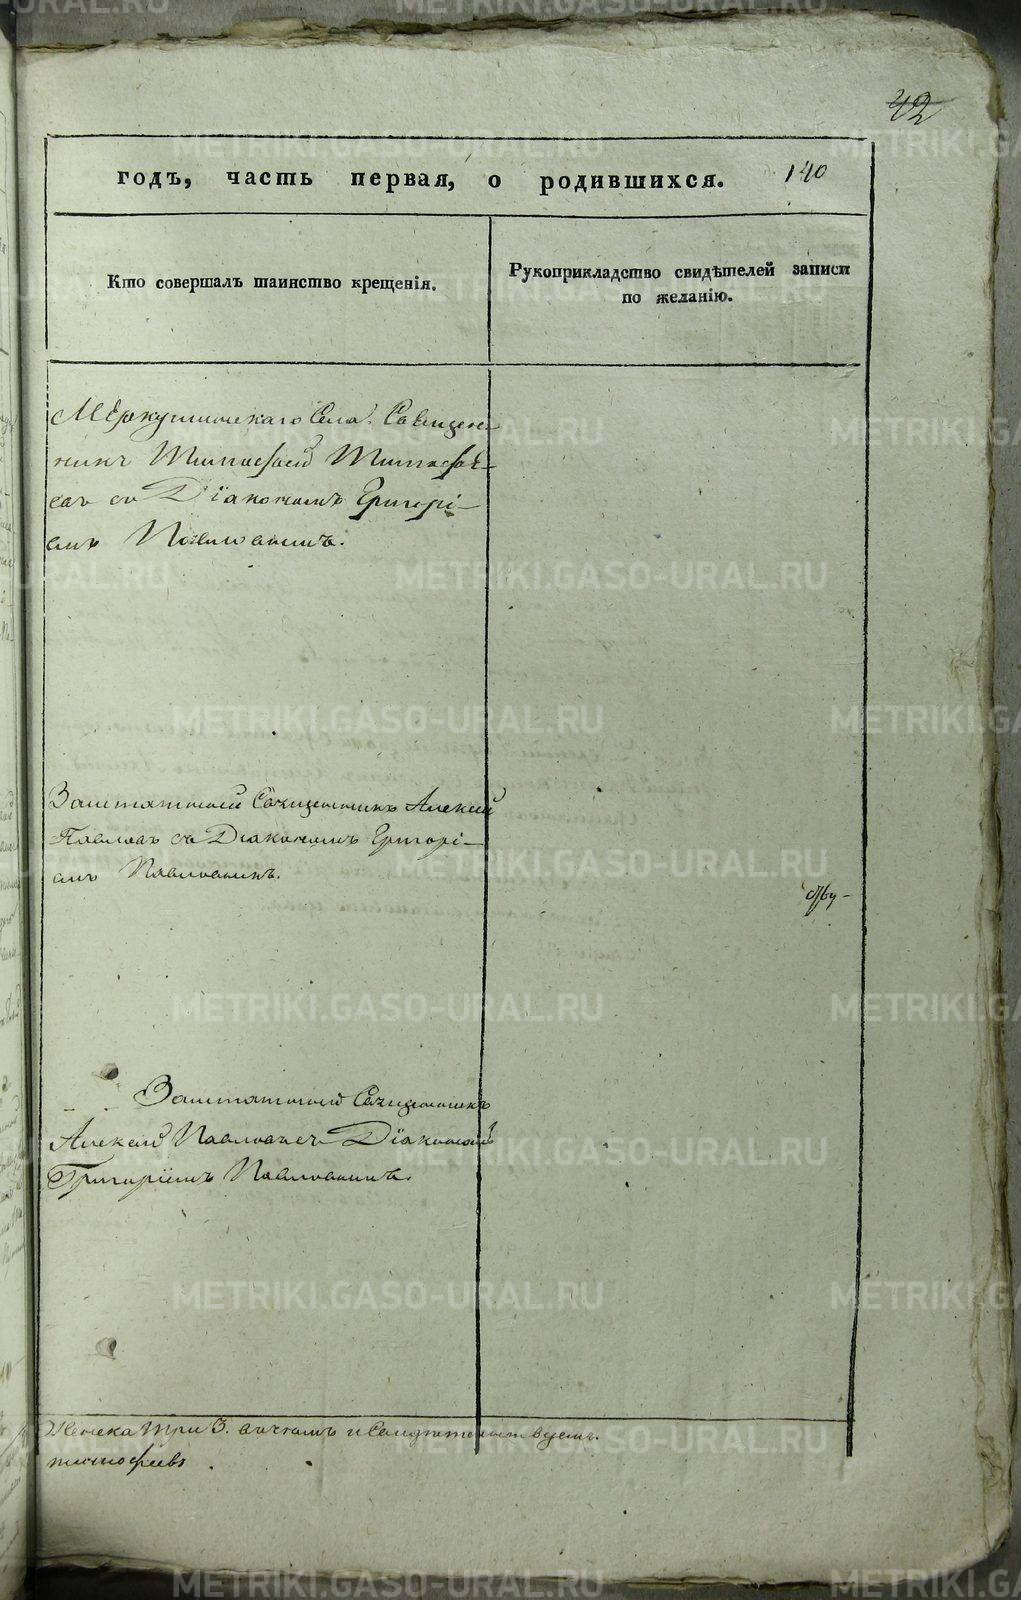 42
годъ, часть первая, о родившихся. 140
Кто совершалъ таинство крещенія.
Рукоприкладство свидѣтелей записи
по желанію.
Меркушинскаго Села Священ-
никъ Тимофей Тимофѣ-
евъ съ Діакономъ Григорі-
емъ Павловымъ.
Заштатный Священникъ Алексѣй
Павловъ съ Діакономъ Григорі-
емъ Павловымъ.
Заштатный Священникъ
Алексѣй Павловъ съ Діакономъ
Григоріемъ Павловымъ.
Женска три 3. въ томъ и свидѣтельствуемъ.
Тимофеевъ
METRIKI.GASO-URAL.RU